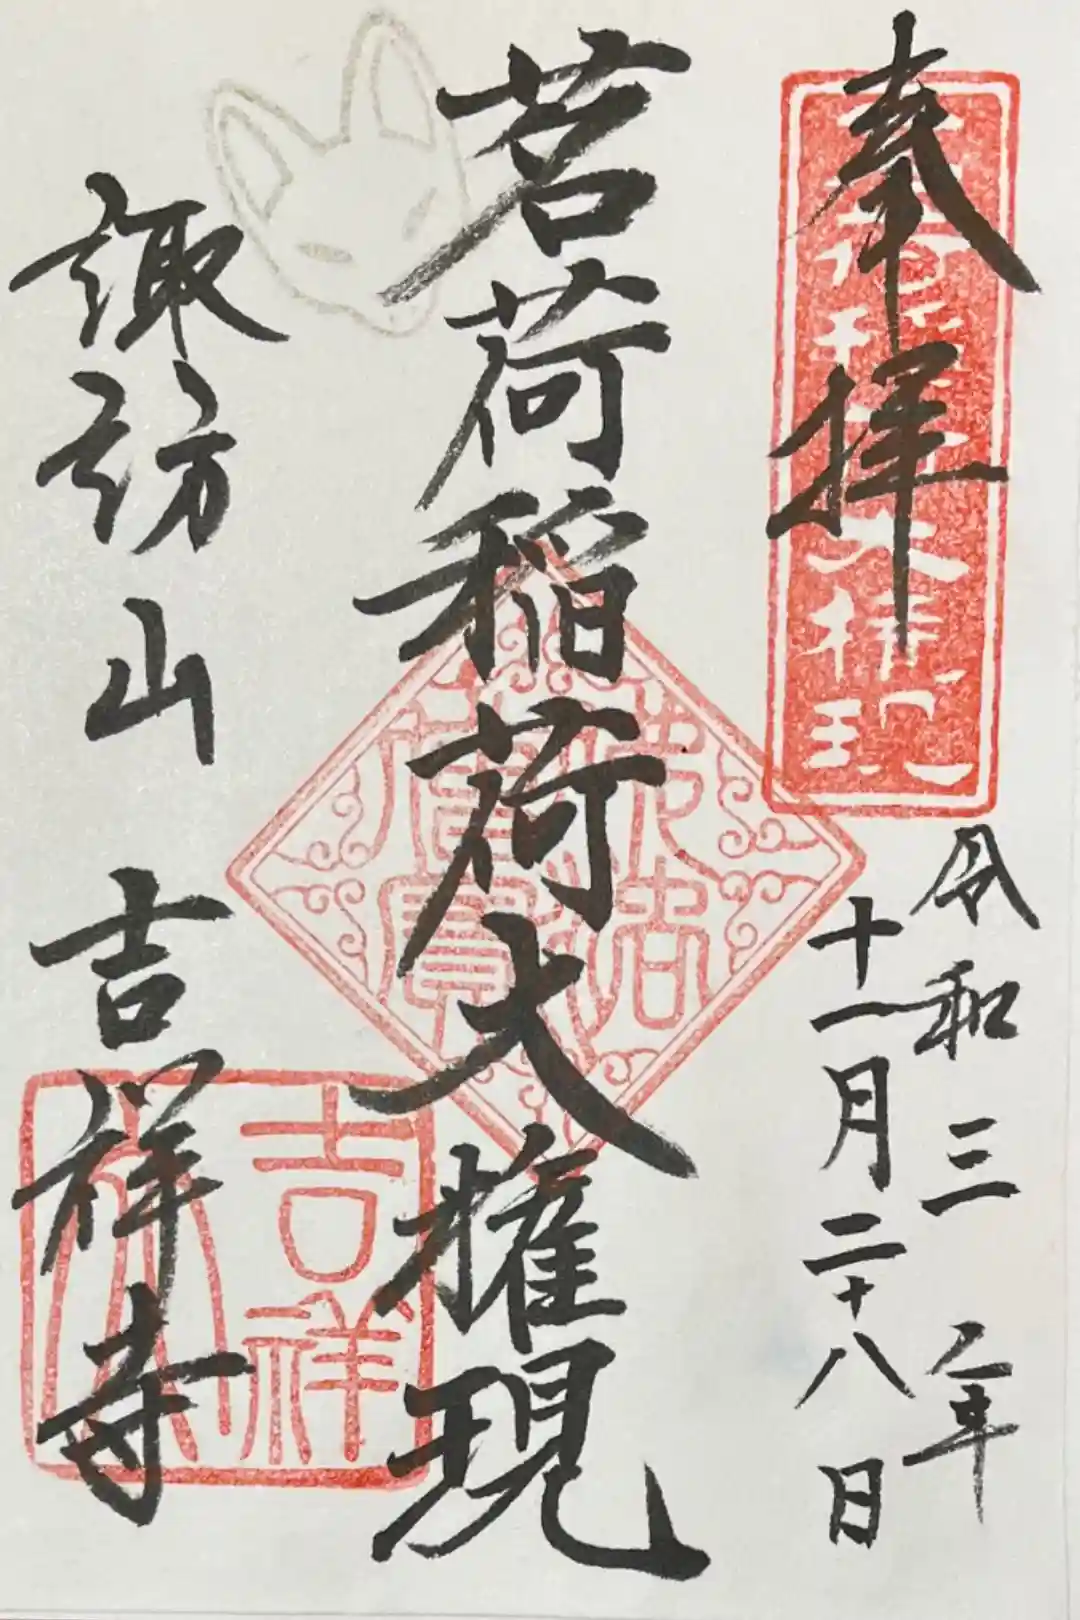 奉拝
令和三年
十一月二十八日
茗荷稲荷大権現
諏訪山 吉祥寺
大権現
吉祥